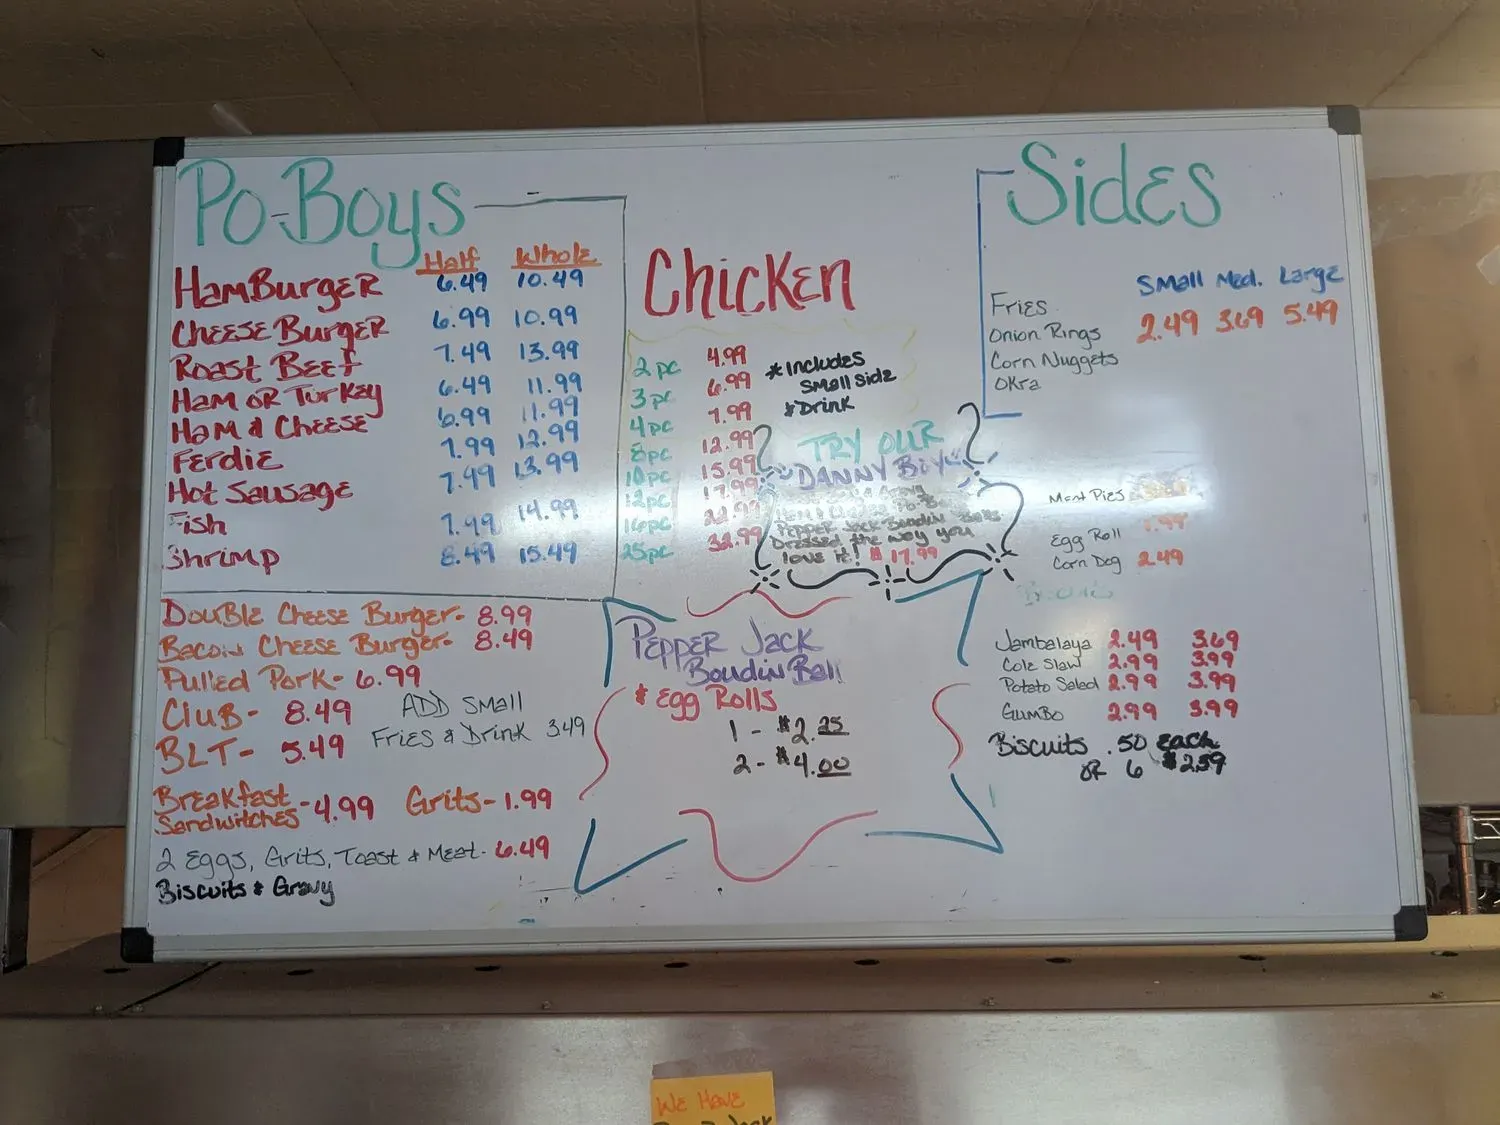 Po-Boys
Half Whole
HamBurger 6.49 10.49
Cheese Burger 6.99 10.99
Roast Beef 7.49 13.99
Ham or Turkey 6.49 11.99
Ham & Cheese 6.99 11.99
Ferdie 7.99 12.99
Hot Sausage 7.49 13.99
Fish 7.99 14.99
Shrimp 8.49 15.49
Double Cheese Burger- 8.99
Bacon Cheese Burger- 8.49
Pulled Pork- 6.99
Club- 8.49
BLT- 5.49
ADD Small
Fries & Drink 3.49
Breakfast
Sandwitches -4.99
Grits- 1.99
2 Eggs, Grits, Toast & Meat- 6.49
Biscuits & Gravy
Chicken
2pc 4.99
3pc 6.99
4pc 7.99
8pc 12.99
10pc 15.99
12pc 17.99
16pc 22.99
25pc 32.99
*Includes
Small Side
& Drink
TRY OUR
DANNY BOY
Pepper Jack Boudin Balls
Dressed the way you
love it! $17.99
Pepper Jack
Boudin Ball
& Egg Rolls
1 - $2.25
2 - $4.00
Sides
Small Med. Large
Fries
Onion Rings 2.49 3.69 5.49
Corn Nuggets
Okra
Meat Pies
Egg Roll
Corn Dog 2.49
Jambalaya 2.49 3.69
Cole Slaw 2.99 3.99
Potato Salad 2.99 3.99
Gumbo 2.99 3.99
Biscuits .50 each
or 6 $2.59
We Have